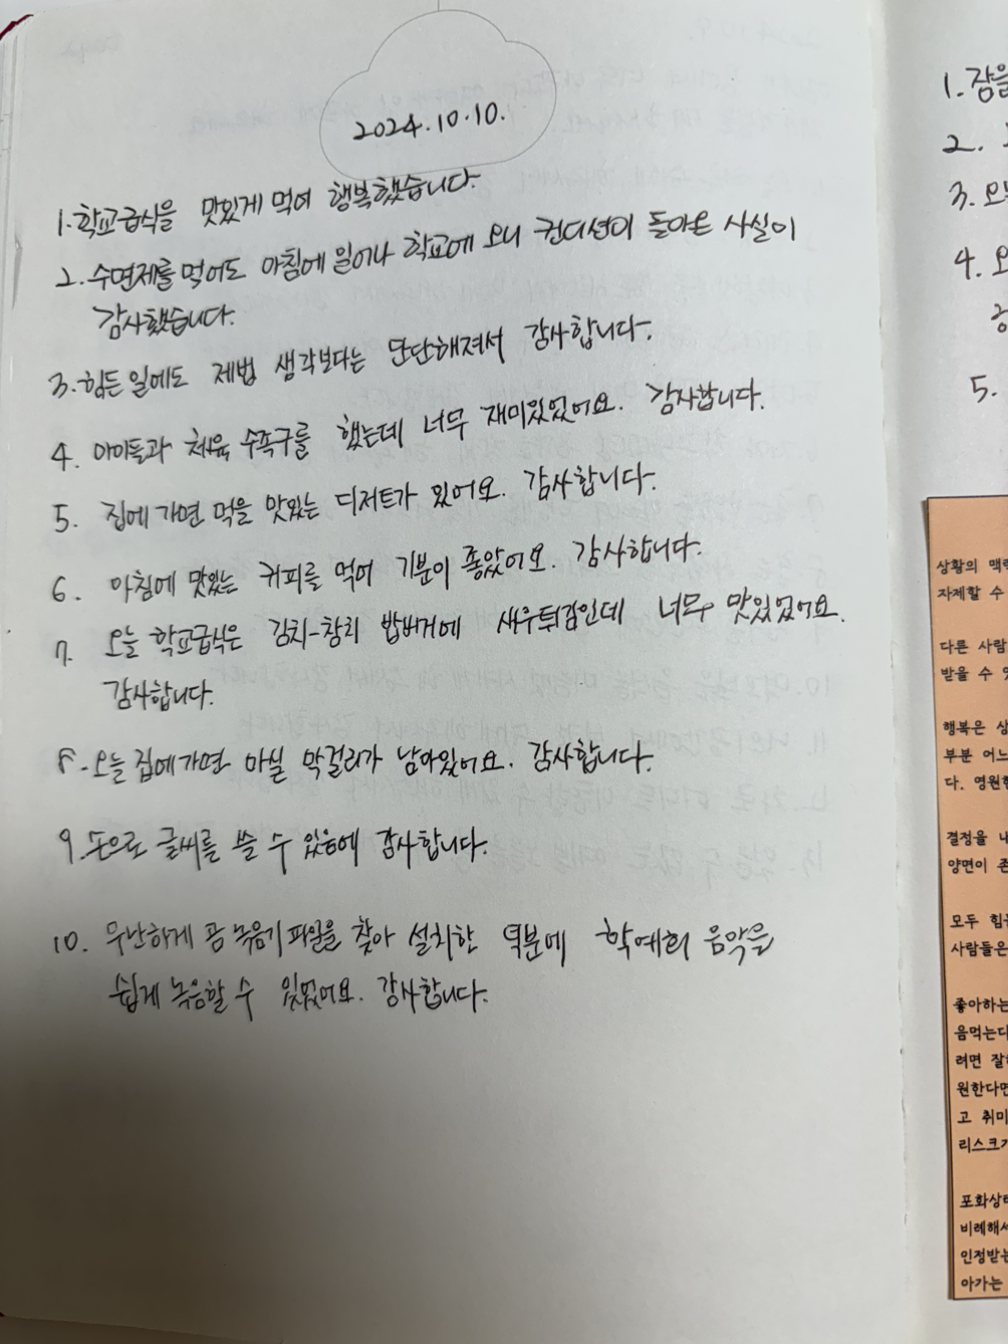 2024.10.10.
1. 학교급식을 맛있게 먹어 행복했습니다.
2. 수면제를 먹어도 아침에 일어나 학교에 오니 컨디션이 돌아온 사실이
감사했습니다.
3. 힘든 일에도 제법 생각보다는 단단해져서 감사합니다.
4. 아이들과 체육 수족구를 했는데 너무 재미있었어요. 감사합니다.
5. 집에 가면 먹을 맛있는 디저트가 있어요. 감사합니다.
6. 아침에 맛있는 커피를 먹어 기분이 좋았어요. 감사합니다.
7. 오늘 학교급식은 김치-참치 밥버거에 새우튀김인데 너무 맛있었어요.
감사합니다.
8. 오늘 집에 가면 마실 막걸리가 남아있어요. 감사합니다.
9. 손으로 글씨를 쓸 수 있음에 감사합니다.
10. 무난하게 곰 녹음기 파일을 찾아 설치한 덕분에 학예회 음악을
쉽게 녹음할 수 있었어요. 감사합니다.
1. 잠을
2.
3. 오
4. 오
5.
상황의 맥
자제할 수
다른 사람
받을 수 있
행복은 상
부분 어느
다. 영원한
결정을 내
양면이 존
모두 힘
사람들은
좋아하는
음먹는다
려면 잘
원한다면
고 취미
리스크가
포화상태
비례해서
인정받는
아가는